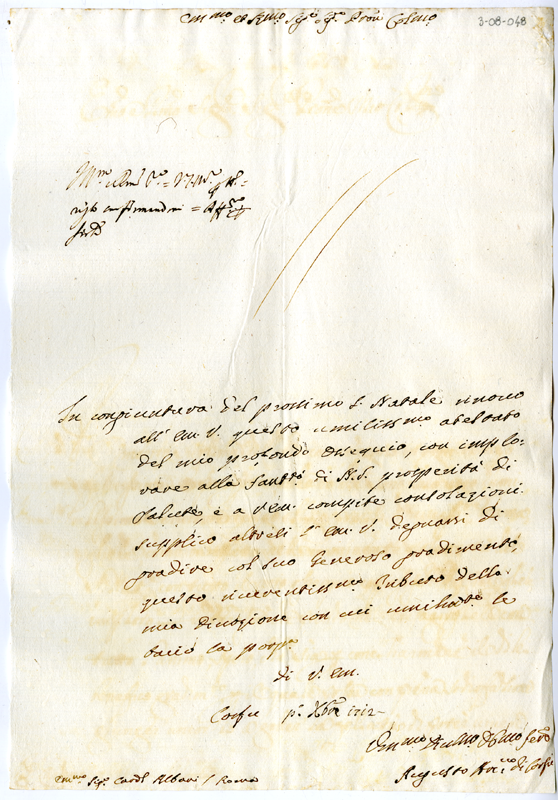 Em.mo et Rmo Sig.r Sig.r Pron Colmo
3-08-048
In congiuntura del prossimo S. Natale rinovo
all' Em. V. questo umilissmo attestato
del mio profondo ossequio, con implo-
rare alla Santtà di N.S. prosperità di
salute, e a V. Em. compite consolazioni.
supplico altresì l' Em. V. degnarsi di
gradire col suo generoso gradimento,
questo riverentissmo tributo della
mia divozione con cui umilmte le
bacio la porpa
di V. Em.
Corfù p.o Xbre 1712
Augusto Arciuo di Corfù
Emmo Sigr Cardl Albani / Roma